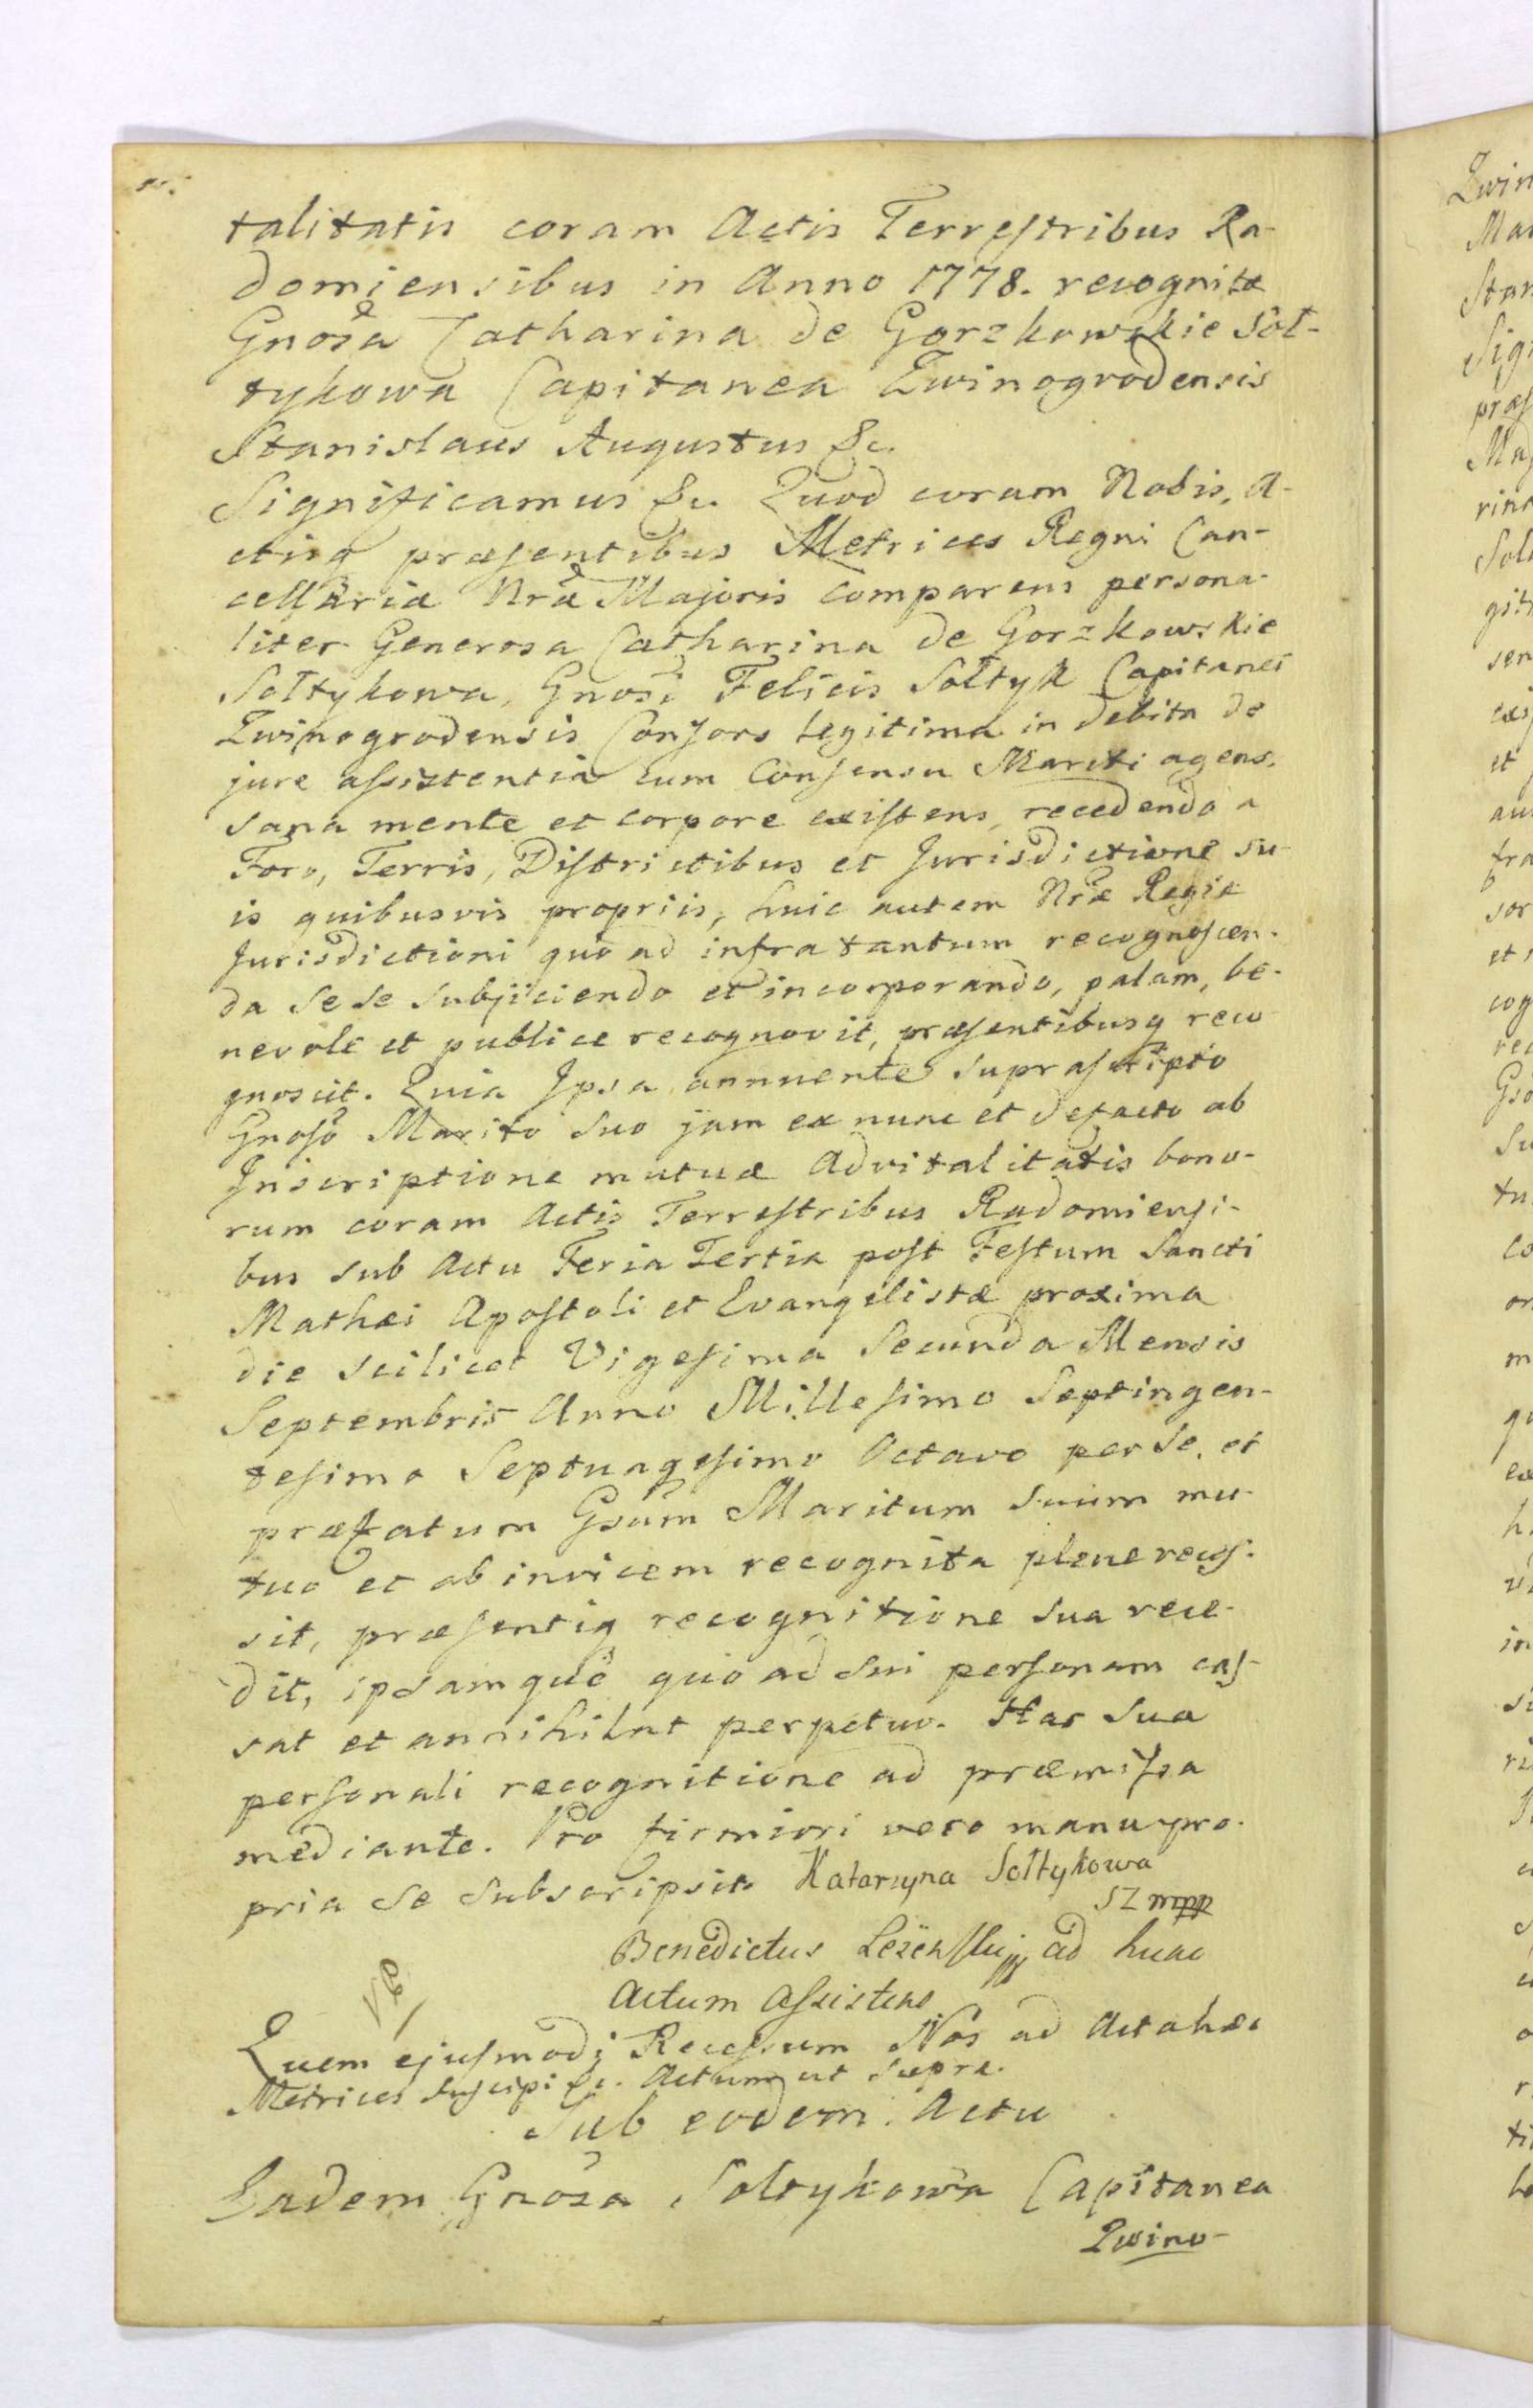 talitatis coram Actis Terrestribus Ra-
domiensibus in Anno 1778. recognitæ
Gnosa Catharina de Gorzkowskie Soł-
tykowa Capitanea Zwinogrodensis
Stanislaus Augustus &c.
Significamus &c. Quod coram Nobis, A-
ctisq præsentibus Metrices Regni Can-
cellariæ Nræ Majoris comparens persona-
liter Generosa Catharina de Gorzkowskie
Sołtykowa, Gnosi Felicis Sołtyk Capitanei
Zwinogrodensis Consors legitima in debita de
jure assistentia cum Consensu Mariti agens,
sana mente et corpore existens, recedendo a
Foro, Terris, Districtibus et Jurisdictione su-
is quibusvis propriis, huic autem Nræ Regiæ
Jurisdictioni quo ad infra tantum recognoscen-
da se se subjiciendo et incorporando, palam, be-
nevole et publice recognovit, præsentibusq reco
gnoscit. Quia Ipsa annuente suprascripto
Gnoso Marito suo jam ex nunc et defacto ab
Inscriptione mutuæ Advitalitatis bono-
rum coram Actis Terrestribus Radomiensi-
bus sub Actu Feria Tertia post Festum Sancti
Mathæi Apostoli et Evangelistæ proxima
die scilicet Vigesima Secunda Mensis
Septembris Anno Millesimo Septingen-
tesimo Septuagesimo Octavo per se, et
præfatum Gsum Maritum suum mu-
tuo et ab invicem recognita plene reces-
sit, præsentiq recognitione sua rece-
dit, ipsamque quo ad sui personam cas-
sat et annihilat perpetuo. Hac sua
personali recognitione ad præmissa
mediante. Pro firmiori vero manu pro-
pria se subscripsit Katarzyna Sołtykowa
SZ mpp
Benedictus ad hunc
Actum Assistens
Quem ejusmodi Recessum Nos ad Acta hæc
Metrices suscipi &c. Actum ut supra.
Sub eodem Actu
Eadem Gnosa Soltykowa Capitanea
Zwino-